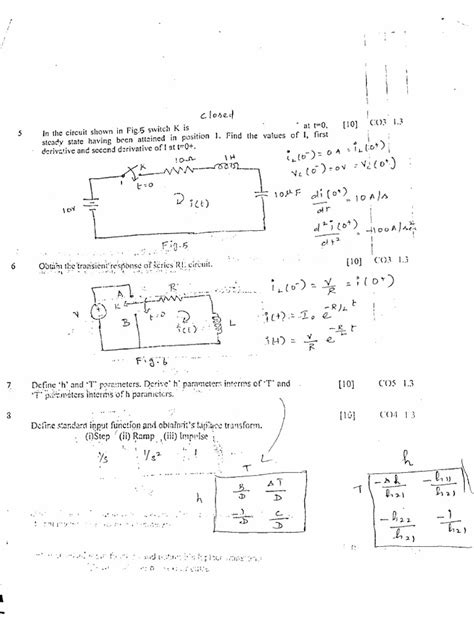 closed
5 In the circuit shown in Fig.5 switch K is at t=0, [10] CO3 1.3
steady state having been attained in position 1. Find the values of I, first
derivative and second derivative of I at t=0+.
10Ω 1H
K
1 t=0
10V
i(t)
10μF
Fig-5
i_L(0⁻) = 0A = i_L(0⁺)
V_C(0⁻) = 0V = V_C(0⁺)
di(0⁺)/dt = 10 A/s
d²i(0⁺)/dt² = -100 A/sec
6 Obtain the transient response of series RL circuit. [10] CO3 1.3
A R
K
V B t=0 i(t) L
Fig-6
i_L(0⁻) = V/R = i(0⁺)
i(t) = I₀ e^(-R/L t)
i(t) = V/R e^(-R/L t)
7 Define 'h' and 'T' parameters. Derive 'h' parameters interms of 'T' and [10] CO5 1.3
'T' parameters interms of h parameters.
8 [10] CO4 1.3
Define standard input function and obtain it's laplace transform.
(i)Step (ii) Ramp (iii) Impulse
1/s 1/s² 1
T
h
B/D ΔT/D
-1/D C/D
h
T
-Δh/h21 -h11/h21
-h22/h21 -1/h21